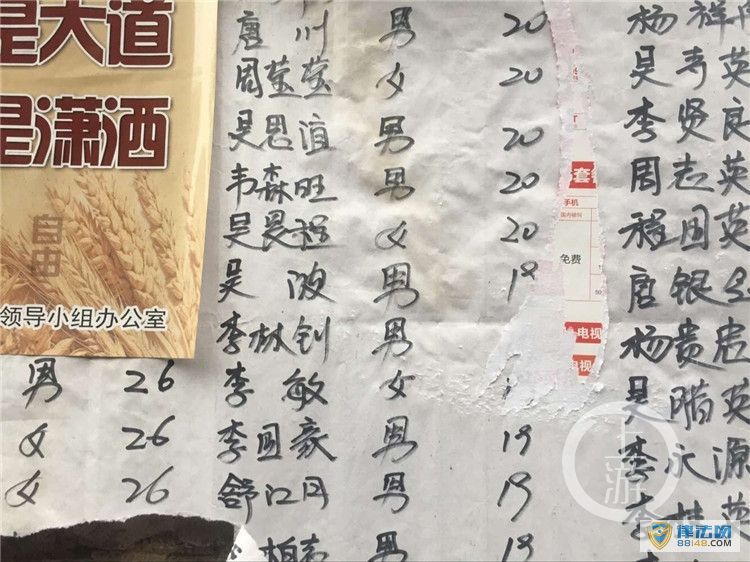 是大道
是潇洒
自由
领导小组办公室
男 26
女 26
女 26
唐 川 男 20
周莹莹 女 20
吴思谊 男 20
韦森旺 男 20
吴恩程 女 20
吴波 男 19
李林钊 男
李敏 女
李国豪 男 19
舒江丹 男 19
柏 男 19
套餐
手机
免费
电视
电视
杨祥
吴李英
李贤良
周志英
程田英
唐银
杨贵
吴腊英
李永源
李桂英
上游
律法网
88148.com